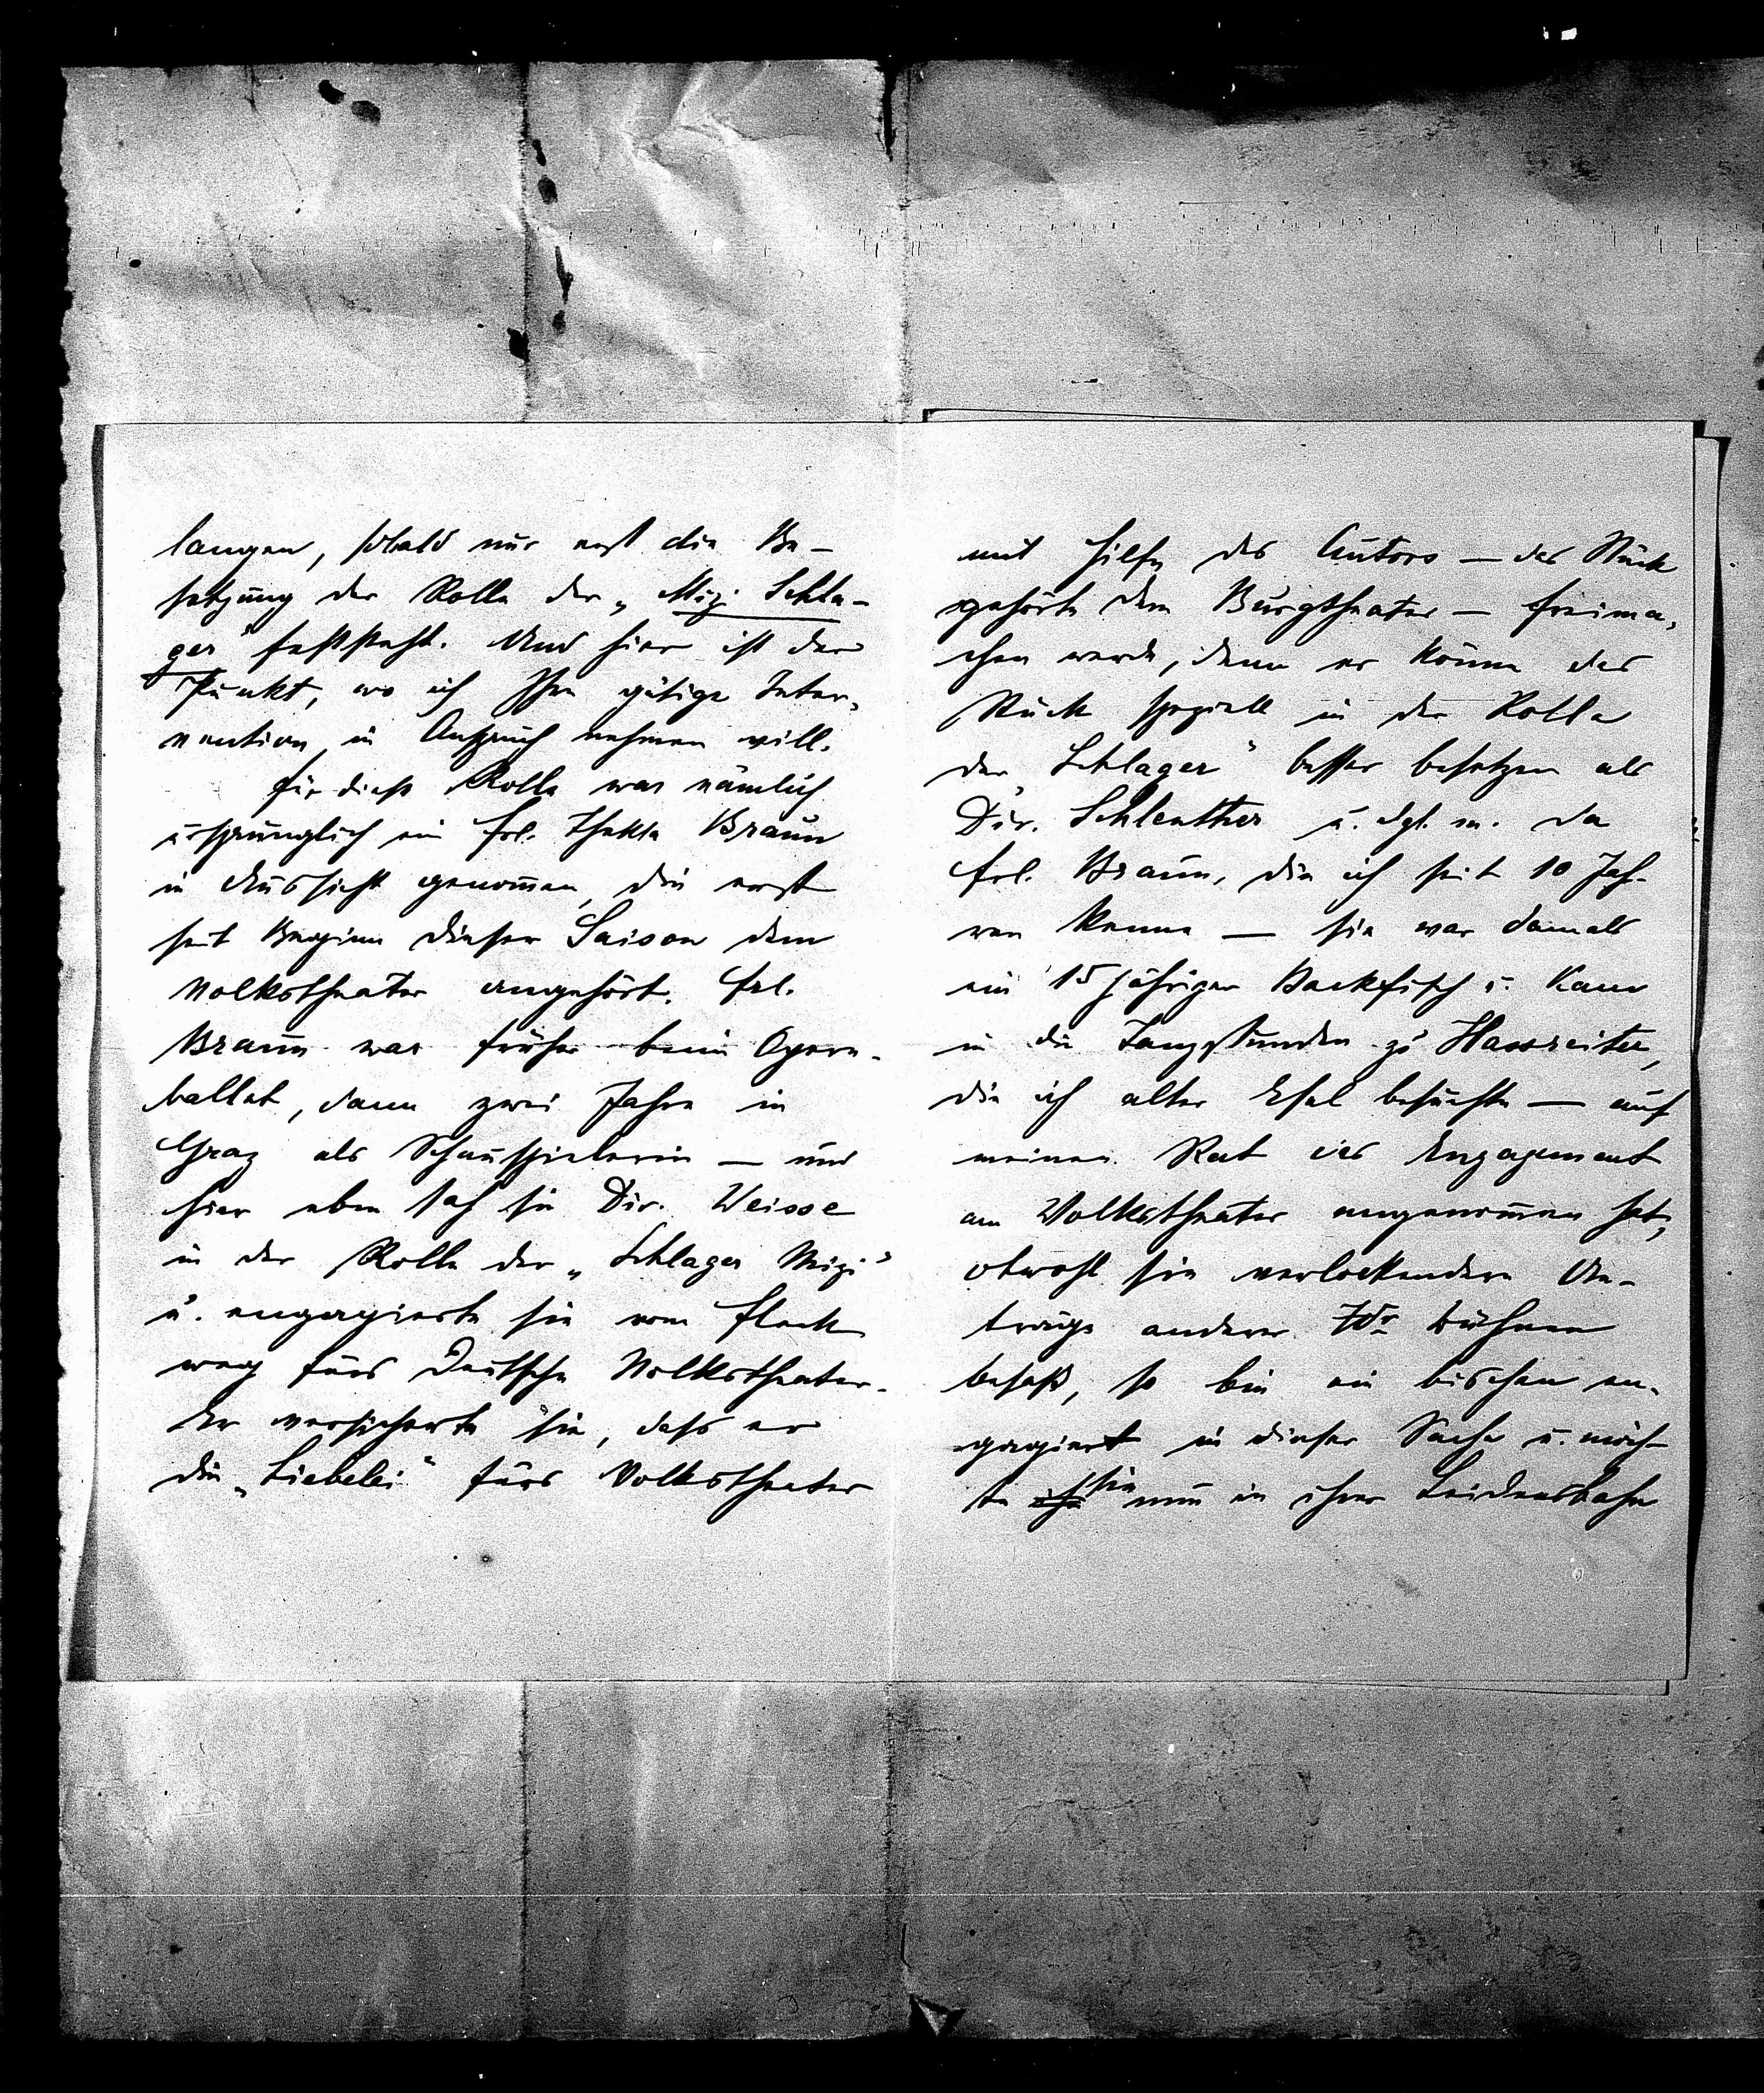 langen, sobald nur erst die Be-
setzung der Rolle der „Mizi Schla-
ger“ feststeht. Und hier ist der
Punkt, wo ich Ihre gütige Inter-
vention in Anspruch nehmen will.
Für diese Rolle war nämlich
ursprünglich ein Frl. Thekla Braun
in Aussicht genommen, die erst
seit Beginn dieser Saison dem
Volkstheater angehört. Frl.
Braun war früher beim Opern-
ballet, dann zwei Jahre in
Graz als Schauspielerin — und
hier eben sah sie Dir. Weisse
in der Rolle der „Schlager Mizi“
u. engagierte sie vom Fleck
weg fürs Deutsche Volkstheater.
Er versicherte sie, dass er
die „Liebelei“ fürs Volkstheater
mit Hilfe des Autors — das Stück
gehörte dem Burgtheater — freima-
chen werde, denn er könne das
Stück speziell in der Rolle
der „Schlager“ besser besetzen als
Dir. Schlenther u. dgl. m. Da
Frl. Braun, die ich seit 10 Jah-
ren kenne — sie war damals
ein 15jähriger Backfisch u. kam
in die Tanzstunden zu Hassreiter,
die ich alter Esel besuchte — auf
meinen Rat das Engagement
am Volkstheater angenommen hat,
obwohl sie verlockendere An-
träge anderer Wr Bühnen
besaß, so bin ein bischen en-
gagiert in dieser Sache u. möch-
te ihr sie nun in ihrer Leidensbahn